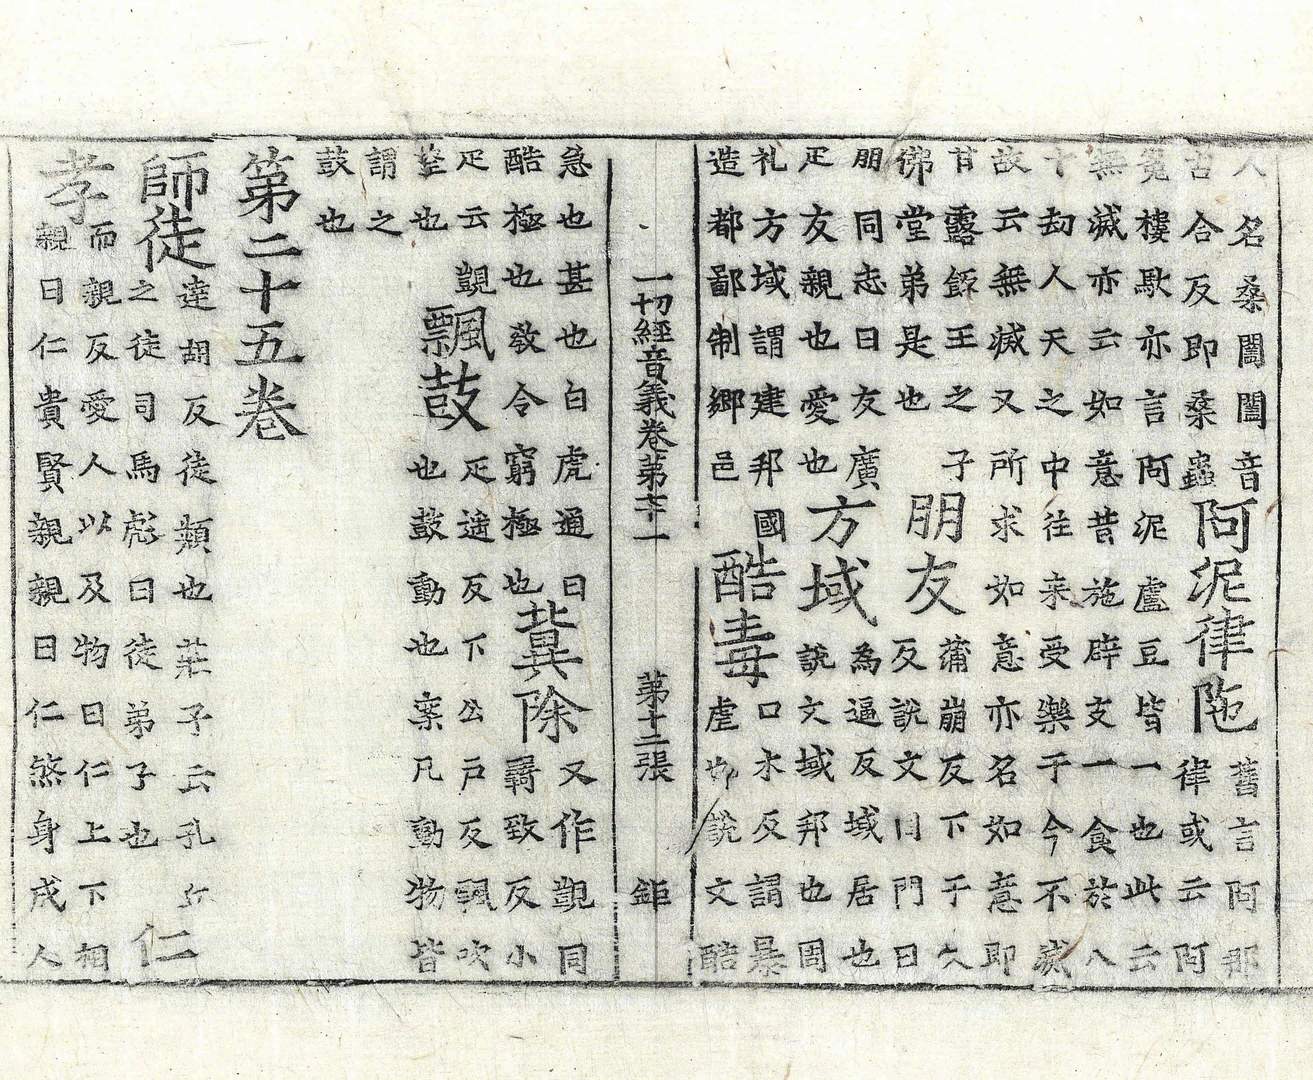 人名桑闔闔音
古合反即桑蟲
阿泥律陁
舊言阿那
律或云阿
菟樓馱亦言阿泥盧豆皆一也此云
無滅亦云如意昔施辟支一食於八
十劫人天之中往来受樂于今不滅
故云無滅又所求如意亦名如意即
甘露飯王之子
佛堂弟是也
朋友
蒲崩反下于久
反説文同門曰
朋同志曰友廣
疋友親也愛也
方域
為逼反域居也
説文域邦也周
礼方域謂建邦國
造都鄙制郷邑
酷毒
口木反謂暴
虐也説文酷
一切經音義卷苐七十一 苐十二張 鉅
急也甚也白虎通曰
酷極也教令窮極也
冀除
又作覬同
羇致反小
疋云覬
望也
飄鼓
疋遥反下公戸反飄吹
也鼓動也案凡動物皆
謂之
鼓也
第二十五卷
師徒
達胡反徒類也莊子云孔丘
之徒司馬彪曰徒弟子也
仁
孝
而親反愛人以及物曰仁上下相
親曰仁貴賢親親曰仁煞身成人